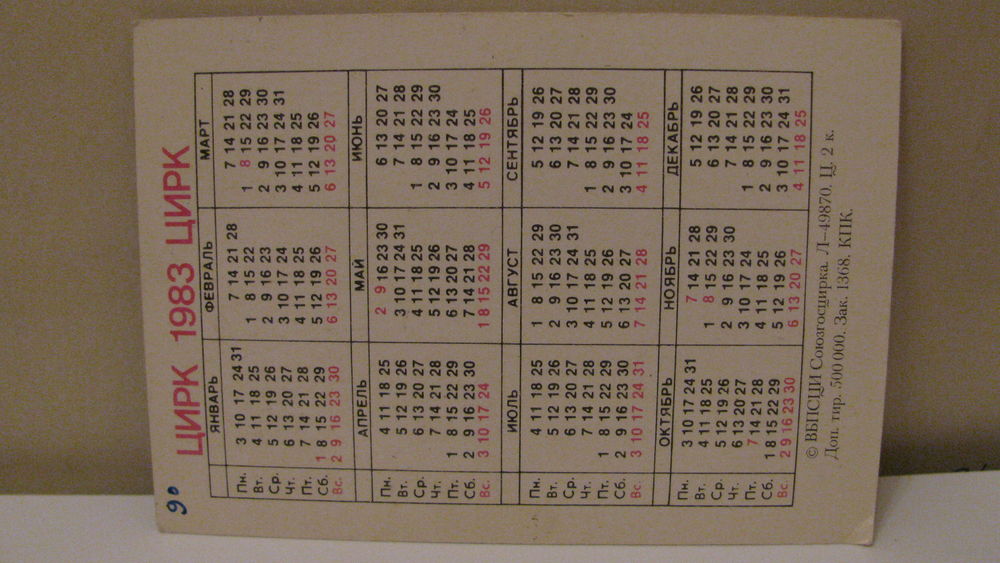 90
ЦИРК 1983 ЦИРК
ЯНВАРЬ ФЕВРАЛЬ МАРТ
Пн. 3 10 17 24 31 7 14 21 28 7 14 21 28
Вт. 4 11 18 25 1 8 15 22 1 8 15 22 29
Ср. 5 12 19 26 2 9 16 23 2 9 16 23 30
Чт. 6 13 20 27 3 10 17 24 3 10 17 24 31
Пт. 7 14 21 28 4 11 18 25 4 11 18 25
Сб. 1 8 15 22 29 5 12 19 26 5 12 19 26
Вс. 2 9 16 23 30 6 13 20 27 6 13 20 27
АПРЕЛЬ МАЙ ИЮНЬ
Пн. 4 11 18 25 2 9 16 23 30 6 13 20 27
Вт. 5 12 19 26 3 10 17 24 31 7 14 21 28
Ср. 6 13 20 27 4 11 18 25 1 8 15 22 29
Чт. 7 14 21 28 5 12 19 26 2 9 16 23 30
Пт. 1 8 15 22 29 6 13 20 27 3 10 17 24
Сб. 2 9 16 23 30 7 14 21 28 4 11 18 25
Вс. 3 10 17 24 1 8 15 22 29 5 12 19 26
ИЮЛЬ АВГУСТ СЕНТЯБРЬ
Пн. 4 11 18 25 1 8 15 22 29 5 12 19 26
Вт. 5 12 19 26 2 9 16 23 30 6 13 20 27
Ср. 6 13 20 27 3 10 17 24 31 7 14 21 28
Чт. 7 14 21 28 4 11 18 25 1 8 15 22 29
Пт. 1 8 15 22 29 5 12 19 26 2 9 16 23 30
Сб. 2 9 16 23 30 6 13 20 27 3 10 17 24
Вс. 3 10 17 24 31 7 14 21 28 4 11 18 25
ОКТЯБРЬ НОЯБРЬ ДЕКАБРЬ
Пн. 3 10 17 24 31 7 14 21 28 5 12 19 26
Вт. 4 11 18 25 1 8 15 22 29 6 13 20 27
Ср. 5 12 19 26 2 9 16 23 30 7 14 21 28
Чт. 6 13 20 27 3 10 17 24 1 8 15 22 29
Пт. 7 14 21 28 4 11 18 25 2 9 16 23 30
Сб. 1 8 15 22 29 5 12 19 26 3 10 17 24 31
Вс. 2 9 16 23 30 6 13 20 27 4 11 18 25
© ВБПСЦИ Союзгосцирка. Л–49870. Ц. 2 к.
Доп. тир. 500 000. Зак. 1368. КПК.